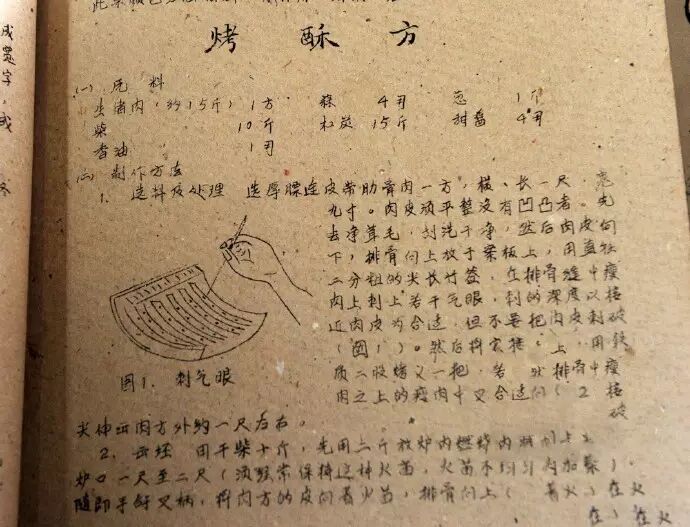 成
字，
或
烤 酥 方
(一) 原 料
生猪肉（约15斤）1方 麻 4两 葱 1斤
柴 10斤 木炭 15斤 甜酱 4两
香油 1两
(二) 制作方法
1. 选料及处理 选厚膘连皮带肋骨肉一方，横、长一尺 宽
九寸。肉皮须平整没有凹凸者。先
去净茸毛，刮洗干净，然后肉皮向
下，排骨向上放于案板上，用直径
二分粗的尖长竹签，在排骨缝中瘦
肉上刺上若干气眼，刺的深度以接
近肉皮为合适，但不要把肉皮刺破
（图1）。然后将它 上，用铁
质二股烤叉一把， 排骨中瘦
肉之上的瘦肉中叉合适
破
图1. 刺气眼
尖伸出肉方外约一尺左右。
2. 用干柴十斤，先用三斤放炉内燃烧
炉口一尺至二尺（须经常保持这种火苗，火苗不均匀加柴）。
随即手持叉柄，将肉方的皮向着火苗，排骨向上（ 着火 在火
在 火